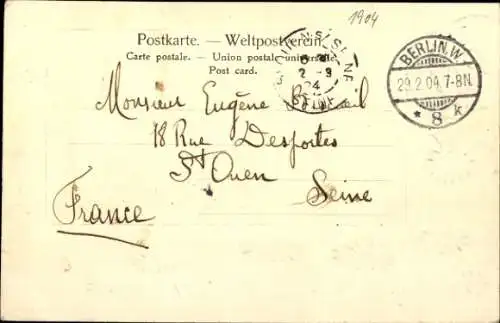 1904
Postkarte. — Weltpostverein
Carte postale. — Union postale universelle
Post card.
BERLIN.W.
29.2.04.7-8N.
* 8 k
Monsieur Eugène
18 Rue Desportes
St Ouen
Seine
France